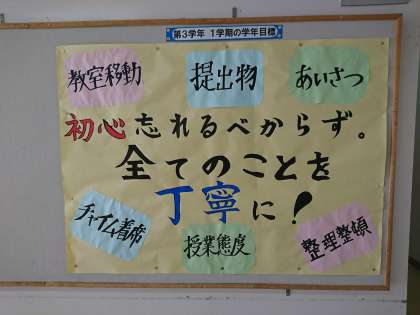 第3学年 1学期の学年目標
教室移動
提出物
あいさつ
初心忘れるべからず。
全てのことを
丁寧に!
チャイム着席
授業態度
整理整頓